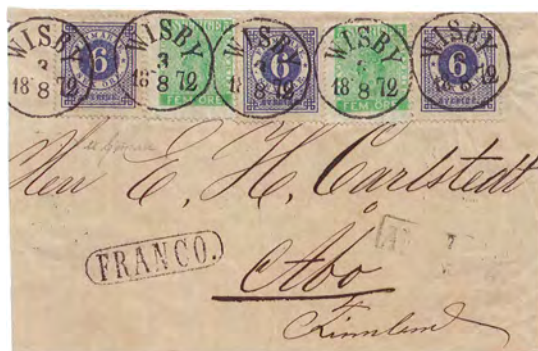 WISBY 3 8 1872
6
WISBY 3 8 1872
FEM ÖRE
WISBY 3 8 1872
6
WISBY 3 8 1872
FEM ÖRE
WISBY 8 1872
6
SVERIGE
Herr E. H. Carlstedt
FRANCO.
Åbo
Finnland